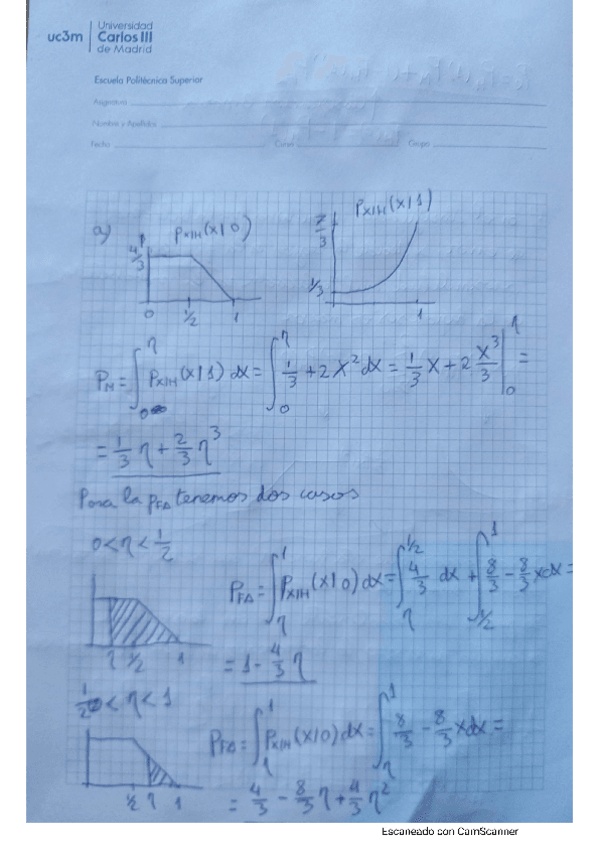 uc3m
Universidad
Carlos III
de Madrid
Escuela Politécnica Superior
Asignatura
Nombre y Apellidos
Fecha Curso Grupo
a) 4/3 P_{X|H}(x|0) 0 1/2 1
7/3 P_{X|H}(x|1) 1/3 1
P_M = ∫_0^η P_{X|H}(x|1) dx = ∫_0^η 1/3 + 2x² dx = 1/3 x + 2 x³/3 |_0^η =
= 1/3 η + 2/3 η³
Para la P_{FA} tenemos dos casos
0 < η < 1/2
P_{FA} = ∫_η^1 P_{X|H}(x|0) dx = ∫_η^{1/2} 4/3 dx + ∫_{1/2}^1 8/3 - 8/3 x dx =
η 1/2 1
= 1 - 4/3 η
1/2 < η < 1
P_{FA} = ∫_η^1 P_{X|H}(x|0) dx = ∫_η^1 8/3 - 8/3 x dx =
1/2 η 1
= 4/3 - 8/3 η + 4/3 η²
Escaneado con CamScanner